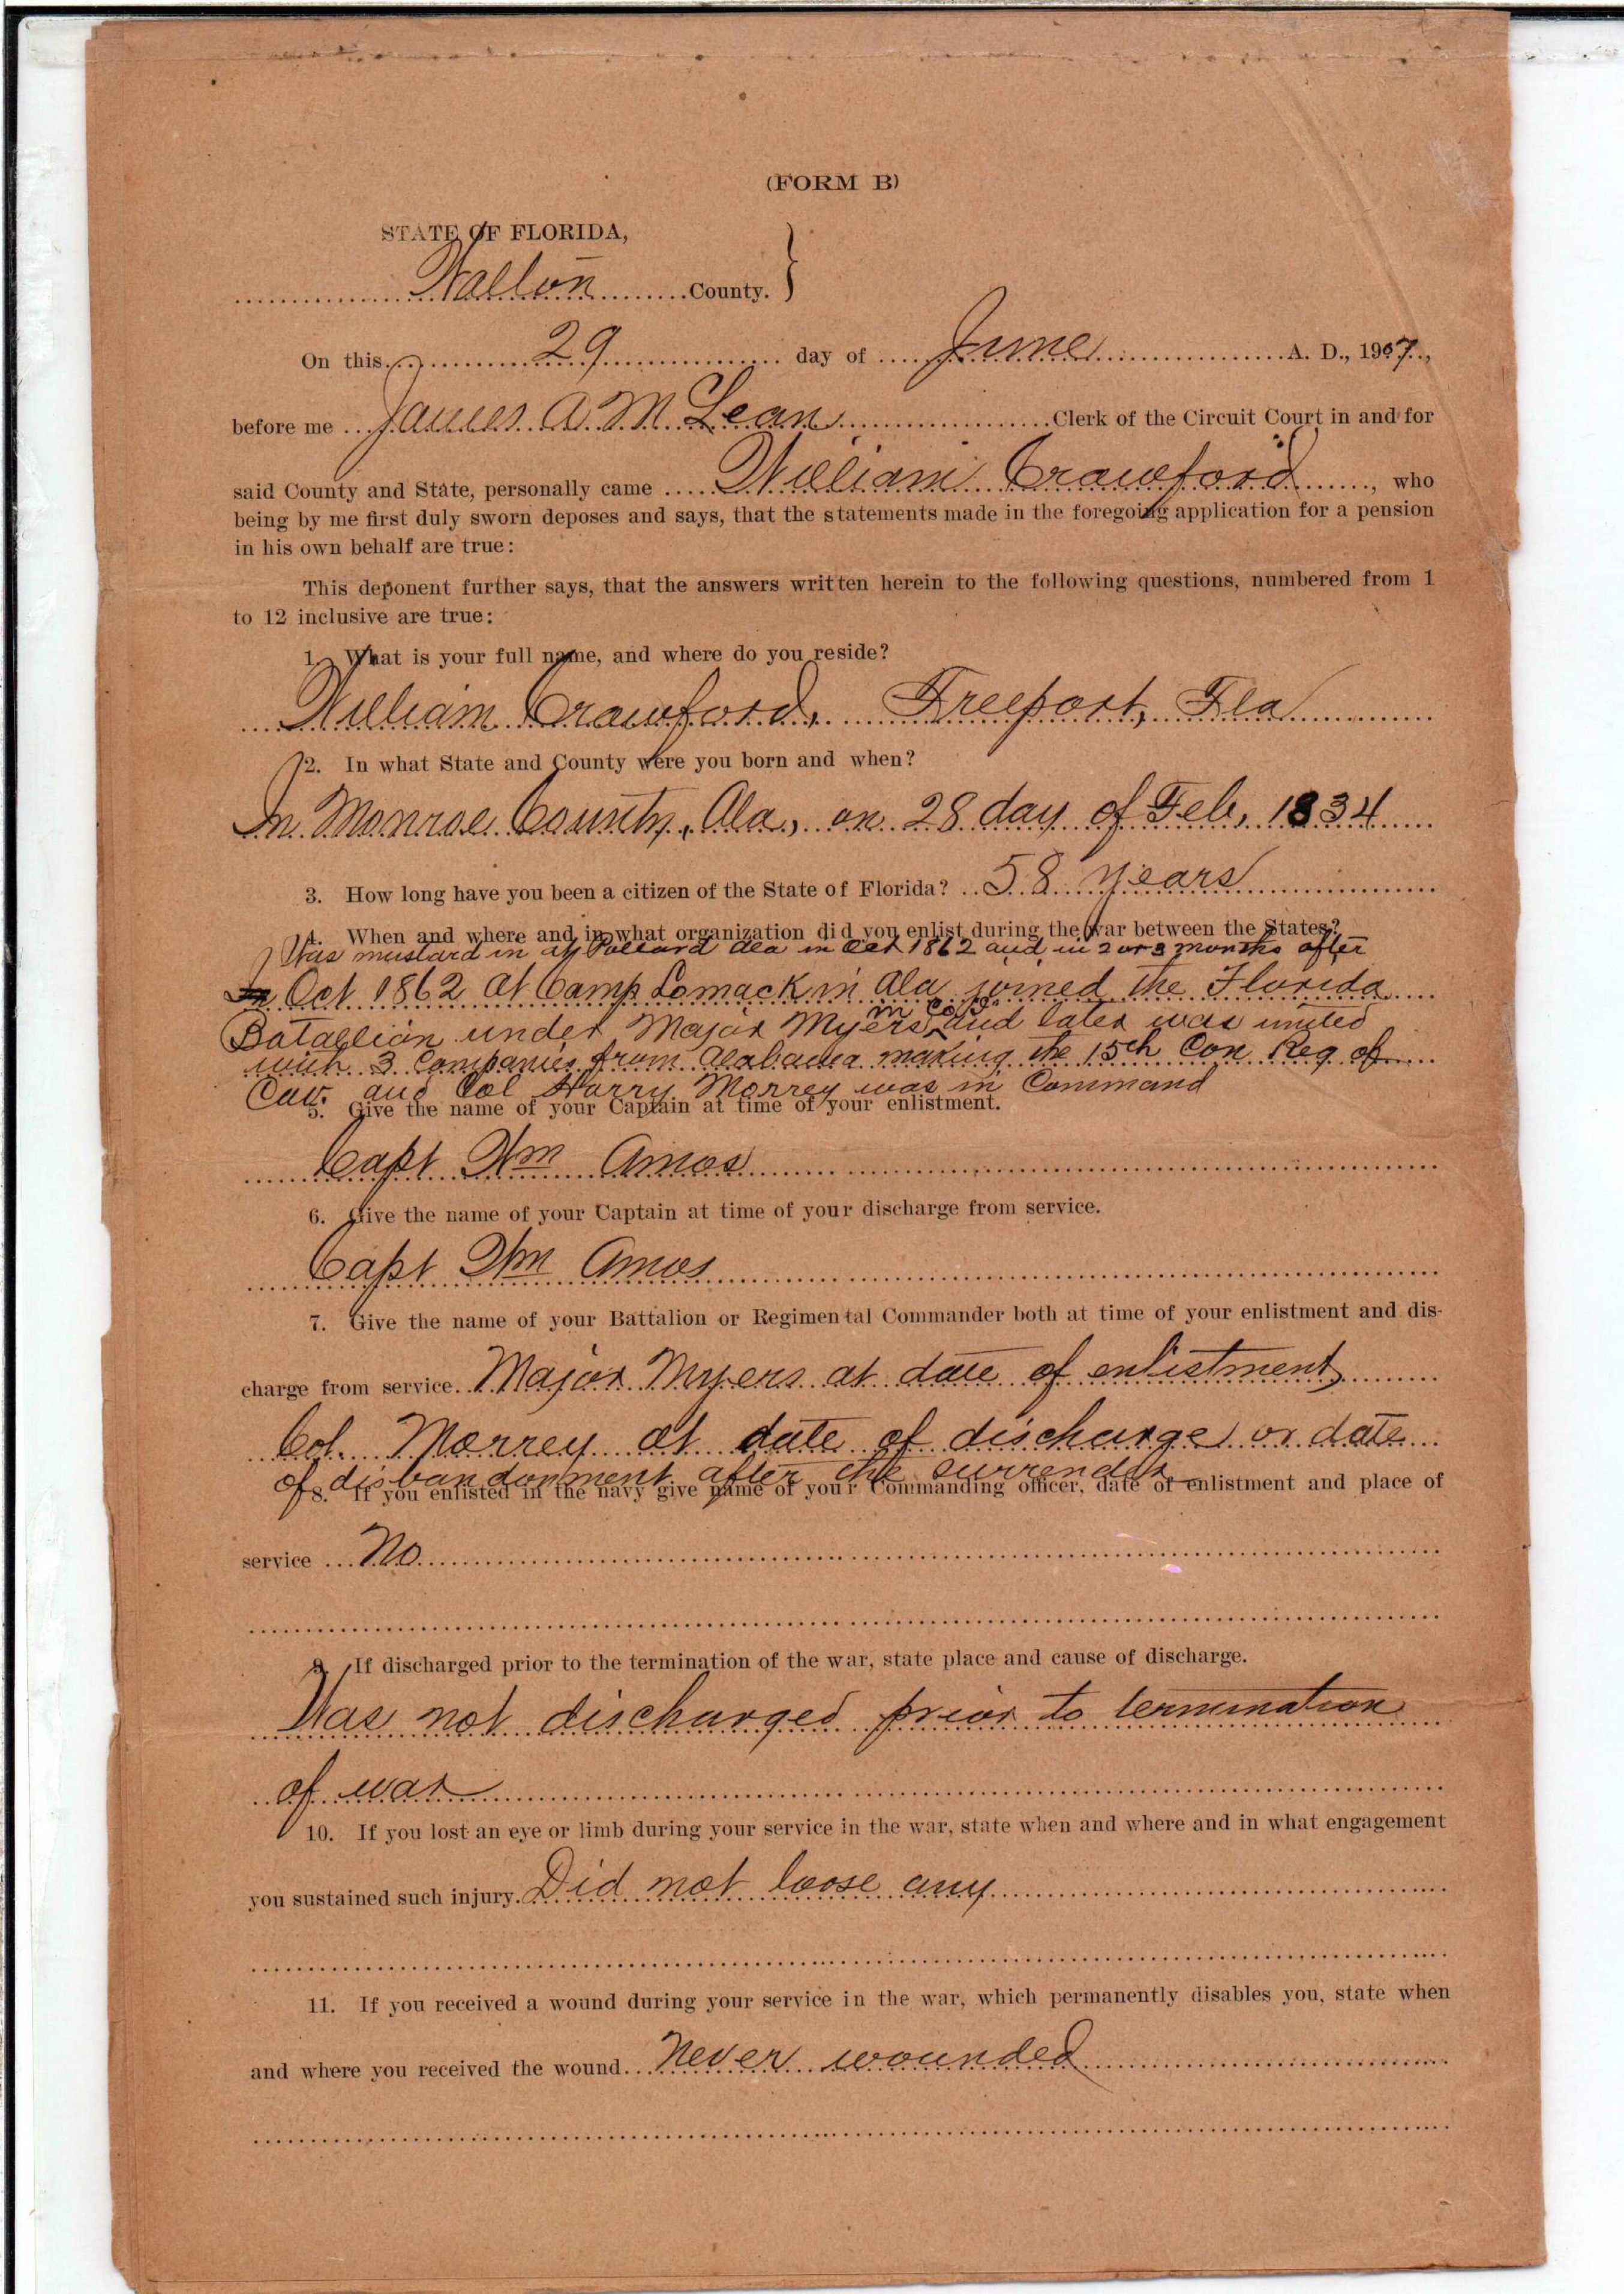 (FORM B)
STATE OF FLORIDA,
Walton County.
On this 29 day of June A. D., 1907,
before me James A. McLean Clerk of the Circuit Court in and for
said County and State, personally came William Crawford, who
being by me first duly sworn deposes and says, that the statements made in the foregoing application for a pension
in his own behalf are true:
This deponent further says, that the answers written herein to the following questions, numbered from 1
to 12 inclusive are true:
1. What is your full name, and where do you reside?
William Crawford, Freeport, Fla
2. In what State and County were you born and when?
In Monroe County, Ala., on 28 day of Feb, 1834
3. How long have you been a citizen of the State of Florida? 58 years
4. When and where and in what organization did you enlist during the war between the States?
Was mustard in at Pollard Ala in Oct 1862 and in 2 or 3 months after
In Oct 1862 at Camp Lomack in Ala joined the Florida
Batallion under Major Myers in Co and later was united
with 3 Companies from Alabama making the 15th Con Reg of
Cav. and Col Harry Morrey was in Command
5. Give the name of your Captain at time of your enlistment.
Capt Wm Amos
6. Give the name of your Captain at time of your discharge from service.
Capt Wm Amos
7. Give the name of your Battalion or Regimental Commander both at time of your enlistment and dis-
charge from service. Major Myers at date of enlistment,
Col. Morrey at date of discharge or date
of disbandonment after the surrender
8. If you enlisted in the navy give name of your Commanding officer, date of enlistment and place of
service No
9. If discharged prior to the termination of the war, state place and cause of discharge.
Was not discharged prior to termination
of war
10. If you lost an eye or limb during your service in the war, state when and where and in what engagement
you sustained such injury. Did not loose any
11. If you received a wound during your service in the war, which permanently disables you, state when
and where you received the wound. Never wounded